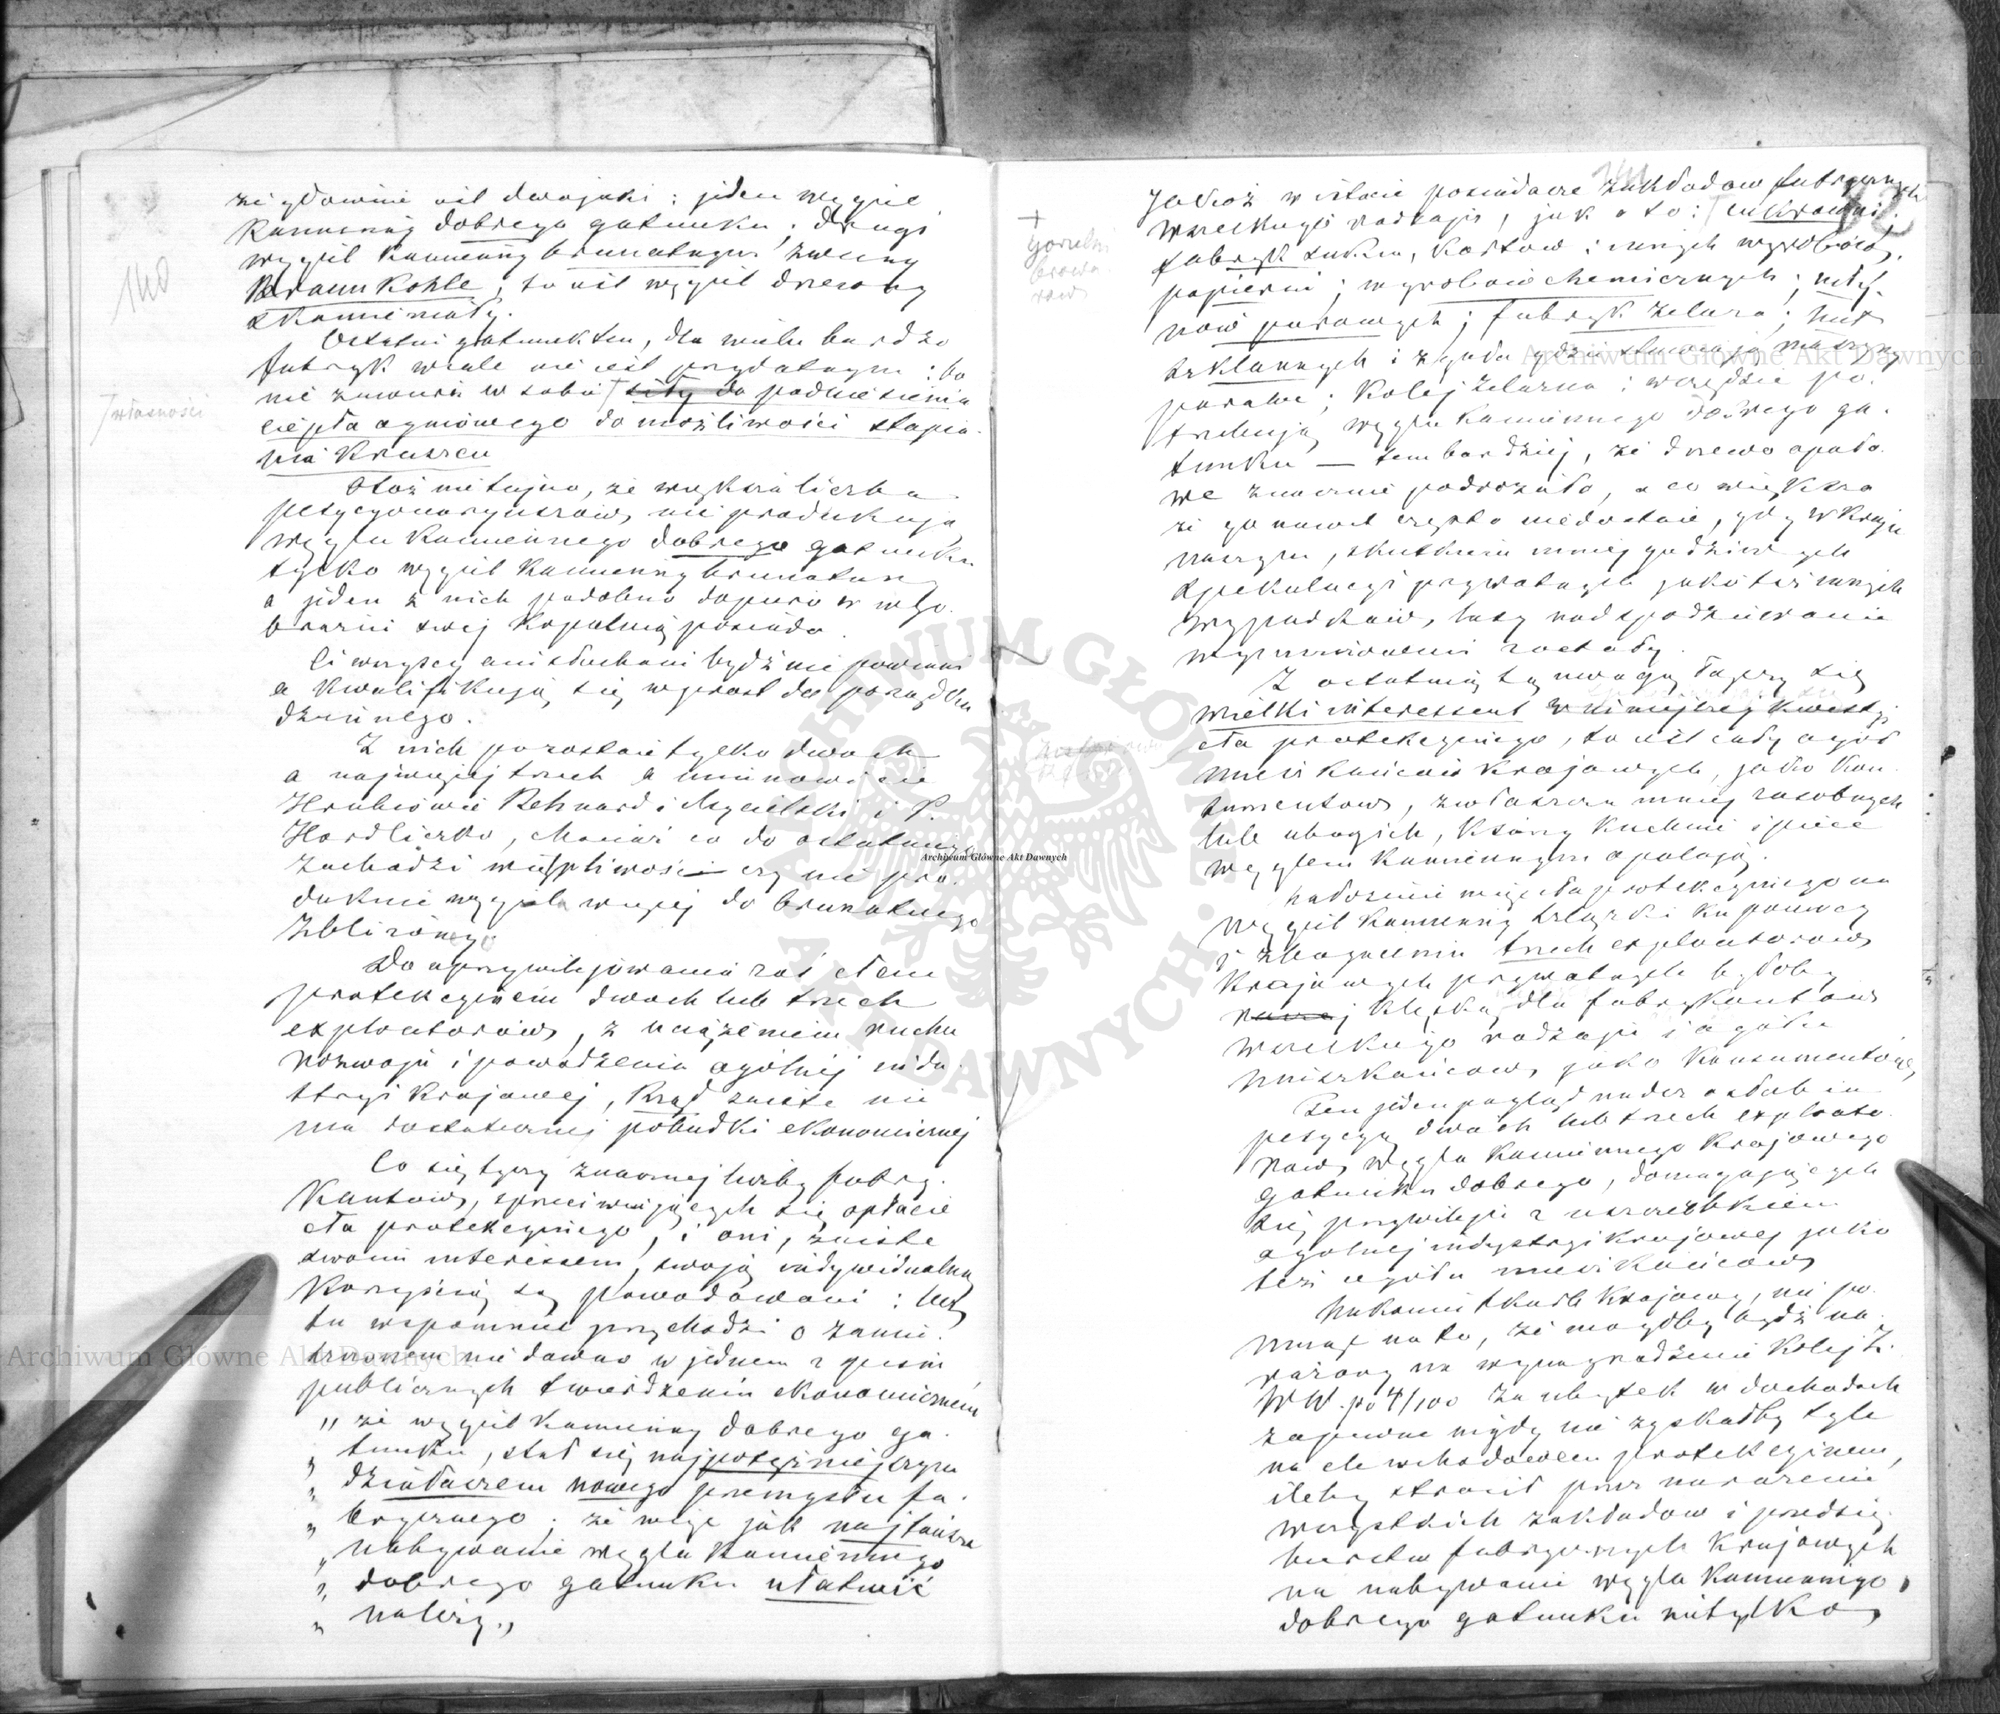 140
że głównie jest dwojaki: jeden węgiel
kamienny dobrego gatunku; drugi
węgiel kamienny brunatnym zwany
Braunkohle, to jest węgiel drzewny
skamieniały.
Ostatni gatunek ten, dla wielu bardzo
fabryk wcale nie jest przydatnym: bo
nie zawiera w sobie siły do podniesienia
własności
ciepła ogniowego do możliwości stapia-
nia kruszcu
Otoż nie tajno, że większa liczba
petycyonaryuszów, nie produkują
węglu kamiennego dobrego gatunku
tylko węgiel kamienny brunatny
a jeden z nich podobno dopiero w wyo-
braźni swej kopalnią posiada.
Ci wszyscy ani słuchani bydź nie powinni
a kwalifikują się wprost do porządku
dziennego.
Z nich pozostaie tylko dwoch
a najwięcej trzech a mianowicie
Hrabiowie Rehnard i Mycielski i P.
Hordliczko, chociaż co do ostatniego
zachodzi wątpliwość czy nie pro-
dukuie węgiel więcej do brunatnego
zbliżony.
Do uprzywilejowania zaś cłem
protekcyinem dwoch lub trzech
exploatorów, z uciążeniem ruchu
rozwoju i powodzenia ogólnej indu-
stryi krajowej, Rząd zaiste nie
ma dostatecznej pobudki ekonomicznej
Co się tyczy znacznej liczby fabry-
kantów, sprzeciwiających się opłacie
cła protekcyinego, i oni, zaiste
swoim interessem, swoją indywidualną
korzyścią są powodowani: lecz
tu wspomnieć przychodzi o zamie-
szczonem nie dawno w jednem z pism
publicznych twierdzeniu ekonomicznem
„że węgiel kamienny dobrego ga-
„tunku, stał się najpotężniejszym
„działaczem nowego przemysłu fa-
„brycznego; że więc jak najtańsze
„nabywanie węgla kamiennego
„dobrego gatunku ułatwić
„należy.„
Jakoż w istocie posiadacze zakładow fabrycznych
wszelkiego rodzaju, jak oto: cukrowni;
Gorzelni
browa-
row
fabryk sukna, kortow i innych wyrobów;
papierni; wyrobow chemicznych; mły-
now parowych; fabryk żelaza; hut
szklannych i zgoła gdzie istnieją machiny
parowe; kolej żelazna; wszędzie po-
trzebują węglu kamiennego dobrego ga-
tunku — tem bardziej, że drzewo opało-
we znacznie podrożało, a co większa
że go nawet często niedostaie, gdy w kraju
naszym, skutkiem mniej godziwych
spekulacyi prywatnych jako też innych
wypadkow, lasy nad spodziewanie
wyniszczeni zostały.
Z ostatnią tą uwagą łączy się
wielki interessent w niniejszej kwestyi
cła protekcyinego, to jest cały ogół
mieszkańcow krajowych, jako kon-
sumentow, zwłaszcza mniej zasobnych
lub ubogich, którzy kuchnie i piece
węglem kamiennym opalają.
Nałożenie więc cła protekcyinego na
węgiel kamienny szlązki ku pomocy
i zbogaceniu trzech exploatorow
krajowych prywatnych byłoby
klęską dla fabrykantow
wszelkiego rodzaju i ogółu
mieszkańcow, jako konsumentow,
Ten jeden pogląd nader osłabia
petycyę dwoch lub trzech exploato-
row węgla kamiennego krajowego
gatunku dobrego, domagających
się przywileju z uszczerbkiem
ogolnej industryi krajowej jako
też ogółu mieszkańcow
Nakoniec Skarb krajowy, nie po-
mnąc na to, że mogłby bydź na-
rażony na wynagrodzenie kolej ż.
W W. po 4/100 za ubytek w dochodach
zapewne nigdy nie zyskałby tyle
na cle wchodowem protekcyinem,
ileby stracił przez narażenie
wszystkich zakładow i przedsię-
biorstw fabrycznych krajowych
na nabywanie węgla kamiennego,
dobrego gatunku nietylko
Archiwum Główne Akt Dawnych
Archiwum Główne Akt Dawnych
Archiwum Główne Akt Dawnych
ARCHIWUM GŁÓWNE AKT DAWNYCH